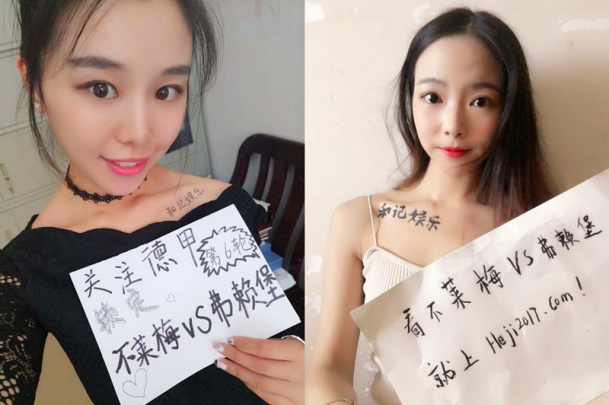 和记娱乐
关注德甲
第6轮
快乐
不莱梅VS弗赖堡
和记娱乐
看不莱梅VS弗赖堡
就上Heji2017.com!